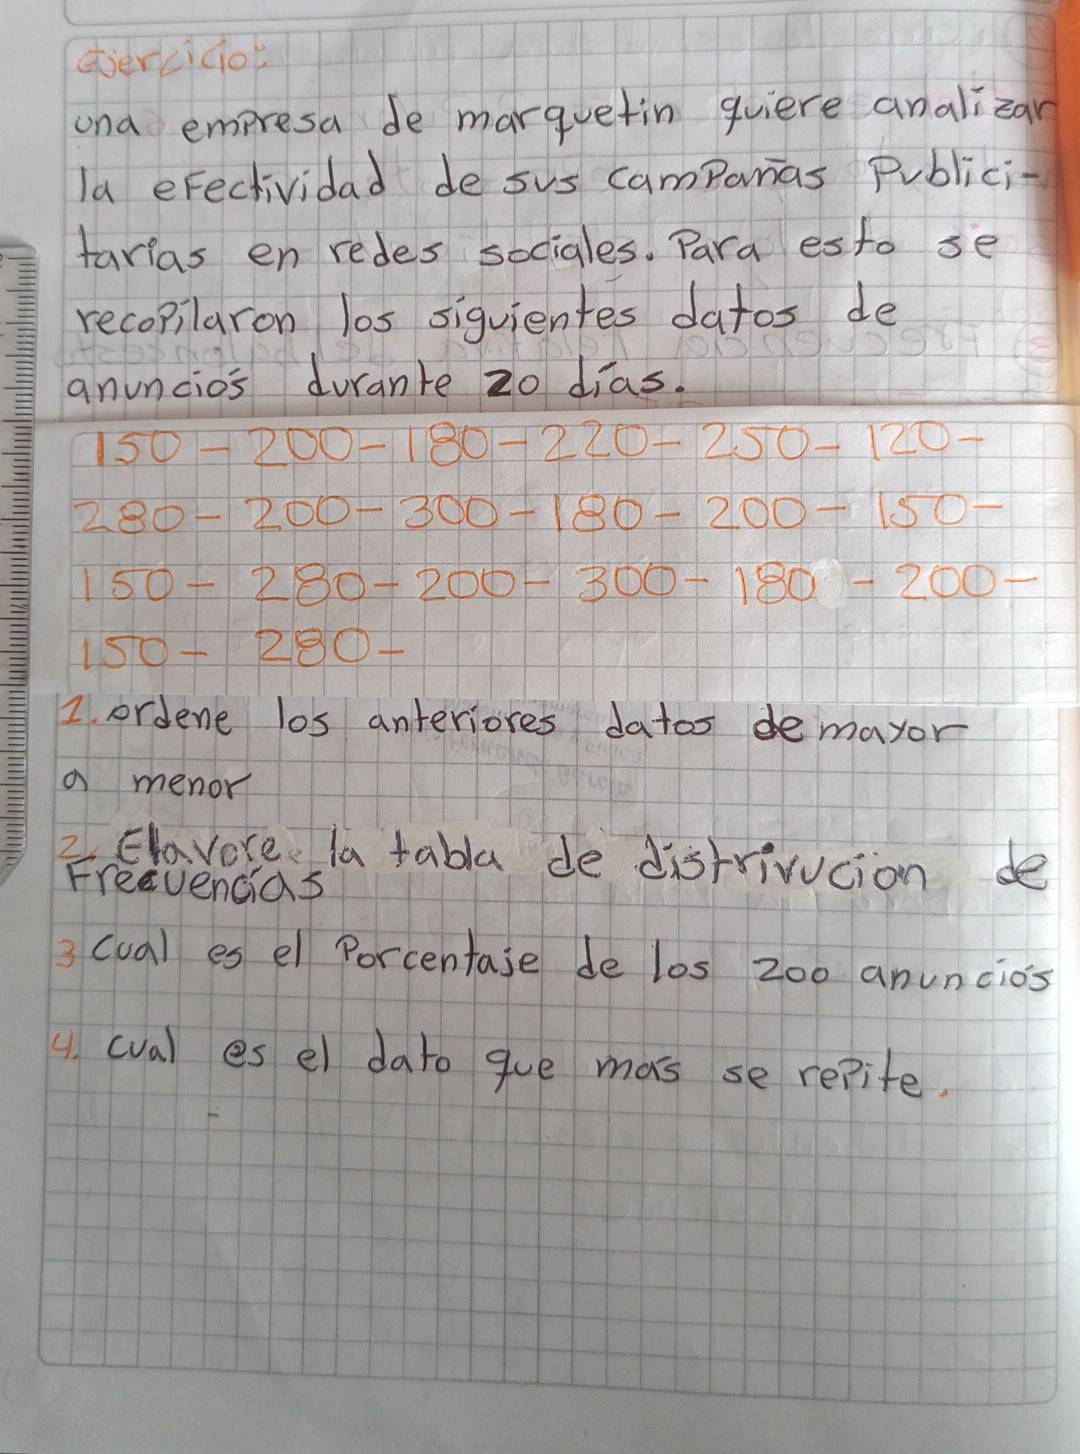 Ejercicio:
una empresa de marquetin quiere analizar
la efectividad de sus campañas Publici-
tarias en redes sociales. Para esto se
recopilaron los siguientes datos de
anuncios durante 20 días.
150 - 200 - 180 - 220 - 250 - 120 -
280 - 200 - 300 - 180 - 200 - 150 -
150 - 280 - 200 - 300 - 180 - 200 -
150 - 280 -
1. ordene los anteriores datos de mayor
a menor
2. Elavore la tabla de distrivución de
Frecuencias
3 cual es el Porcentaje de los 200 anuncios
4. cual es el dato que más se repite.